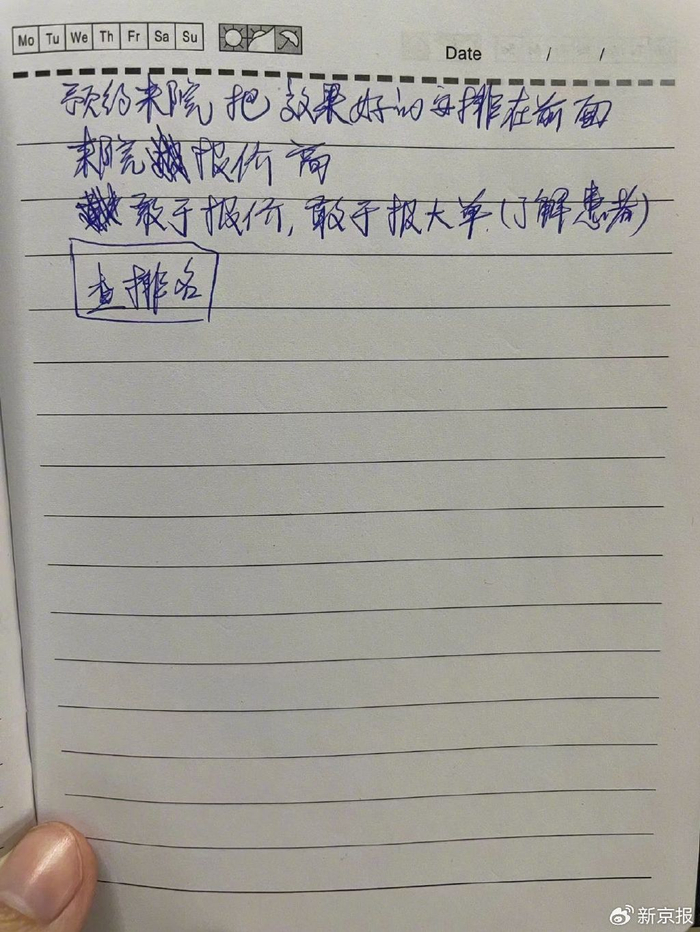 Mo Tu We Th Fr Sa Su
Date / /
预约来院 把效果好的安排在前面
来院 报价高
敢于报价,敢于报大单(了解患者)
查排名
新京报